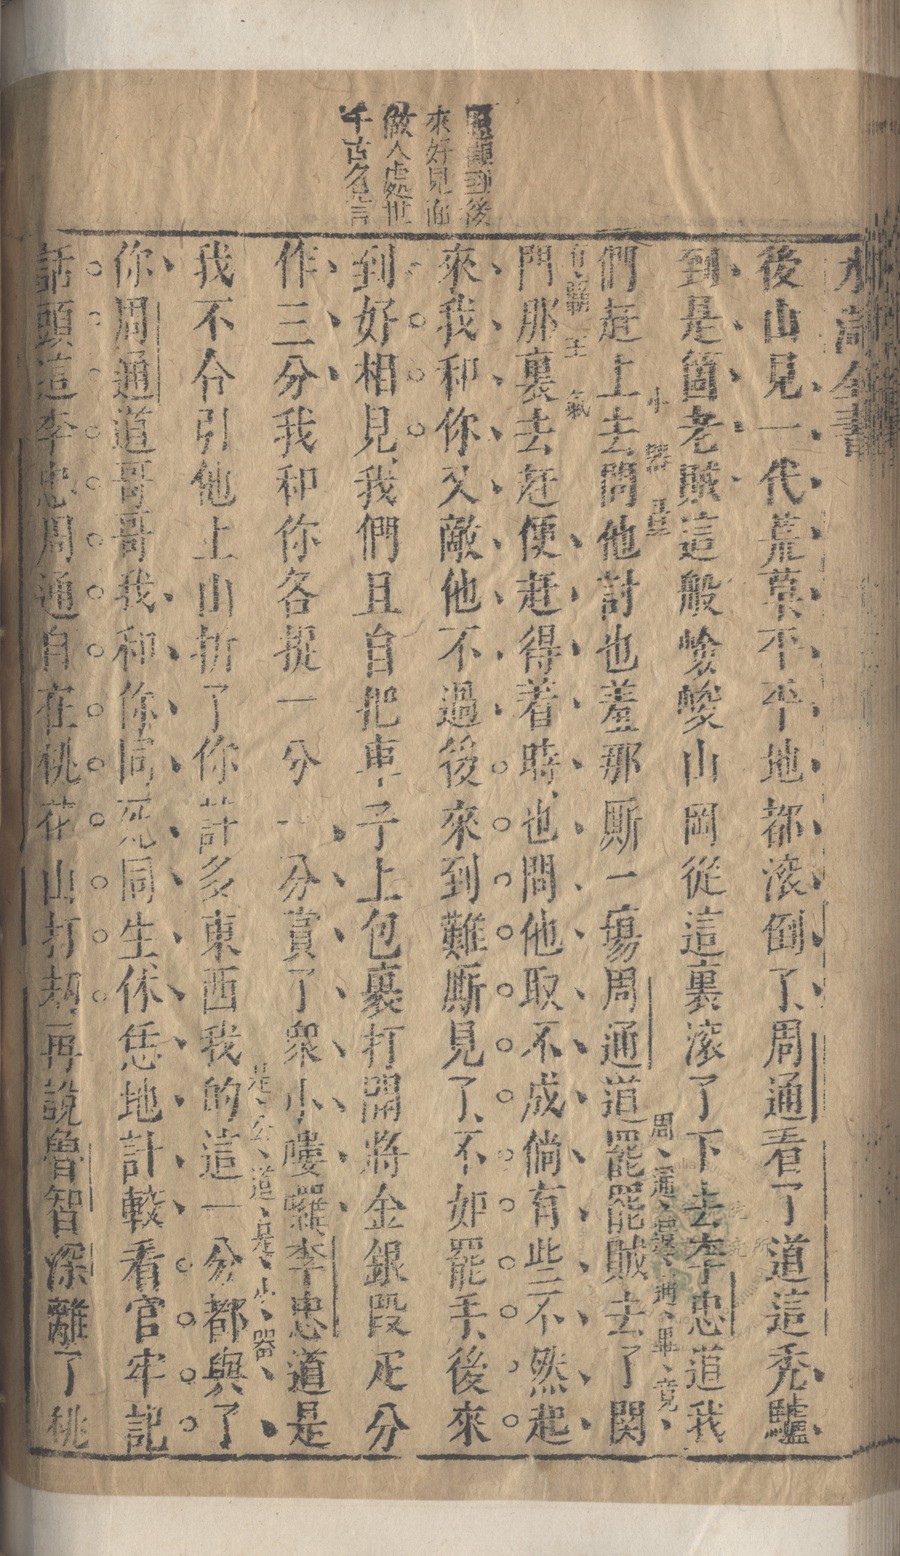 照顧到後
來好見面
做人處世
千古名言
水滸全書
後山見一代荒草平平地都滾倒了周通看了道這禿驢
到是箇老賊這般嶮峻山岡從這裏滾了下去李忠道我
小器量
們赶上去問他討也羞那厮一塲周通道罷罷賊去了関
周通
畢竟
有霸王氣
門那裏去赶便赶得着時也問他取不成倘有些不然起
來我和你又敵他不過後來到難厮見了不如罷手後來
到好相見我們且自把車子上包裹打開將金銀段疋分
作三分我和你各捉一分一分賞了衆小嘍囉李忠道是
是公道是小器
我不合引他上山折了你許多東西我的這一分都與了
你周通道哥哥我和你同死同生休恁地計較看官牢記
話頭這李忠周通自在桃花山打刼再說魯智深離了桃